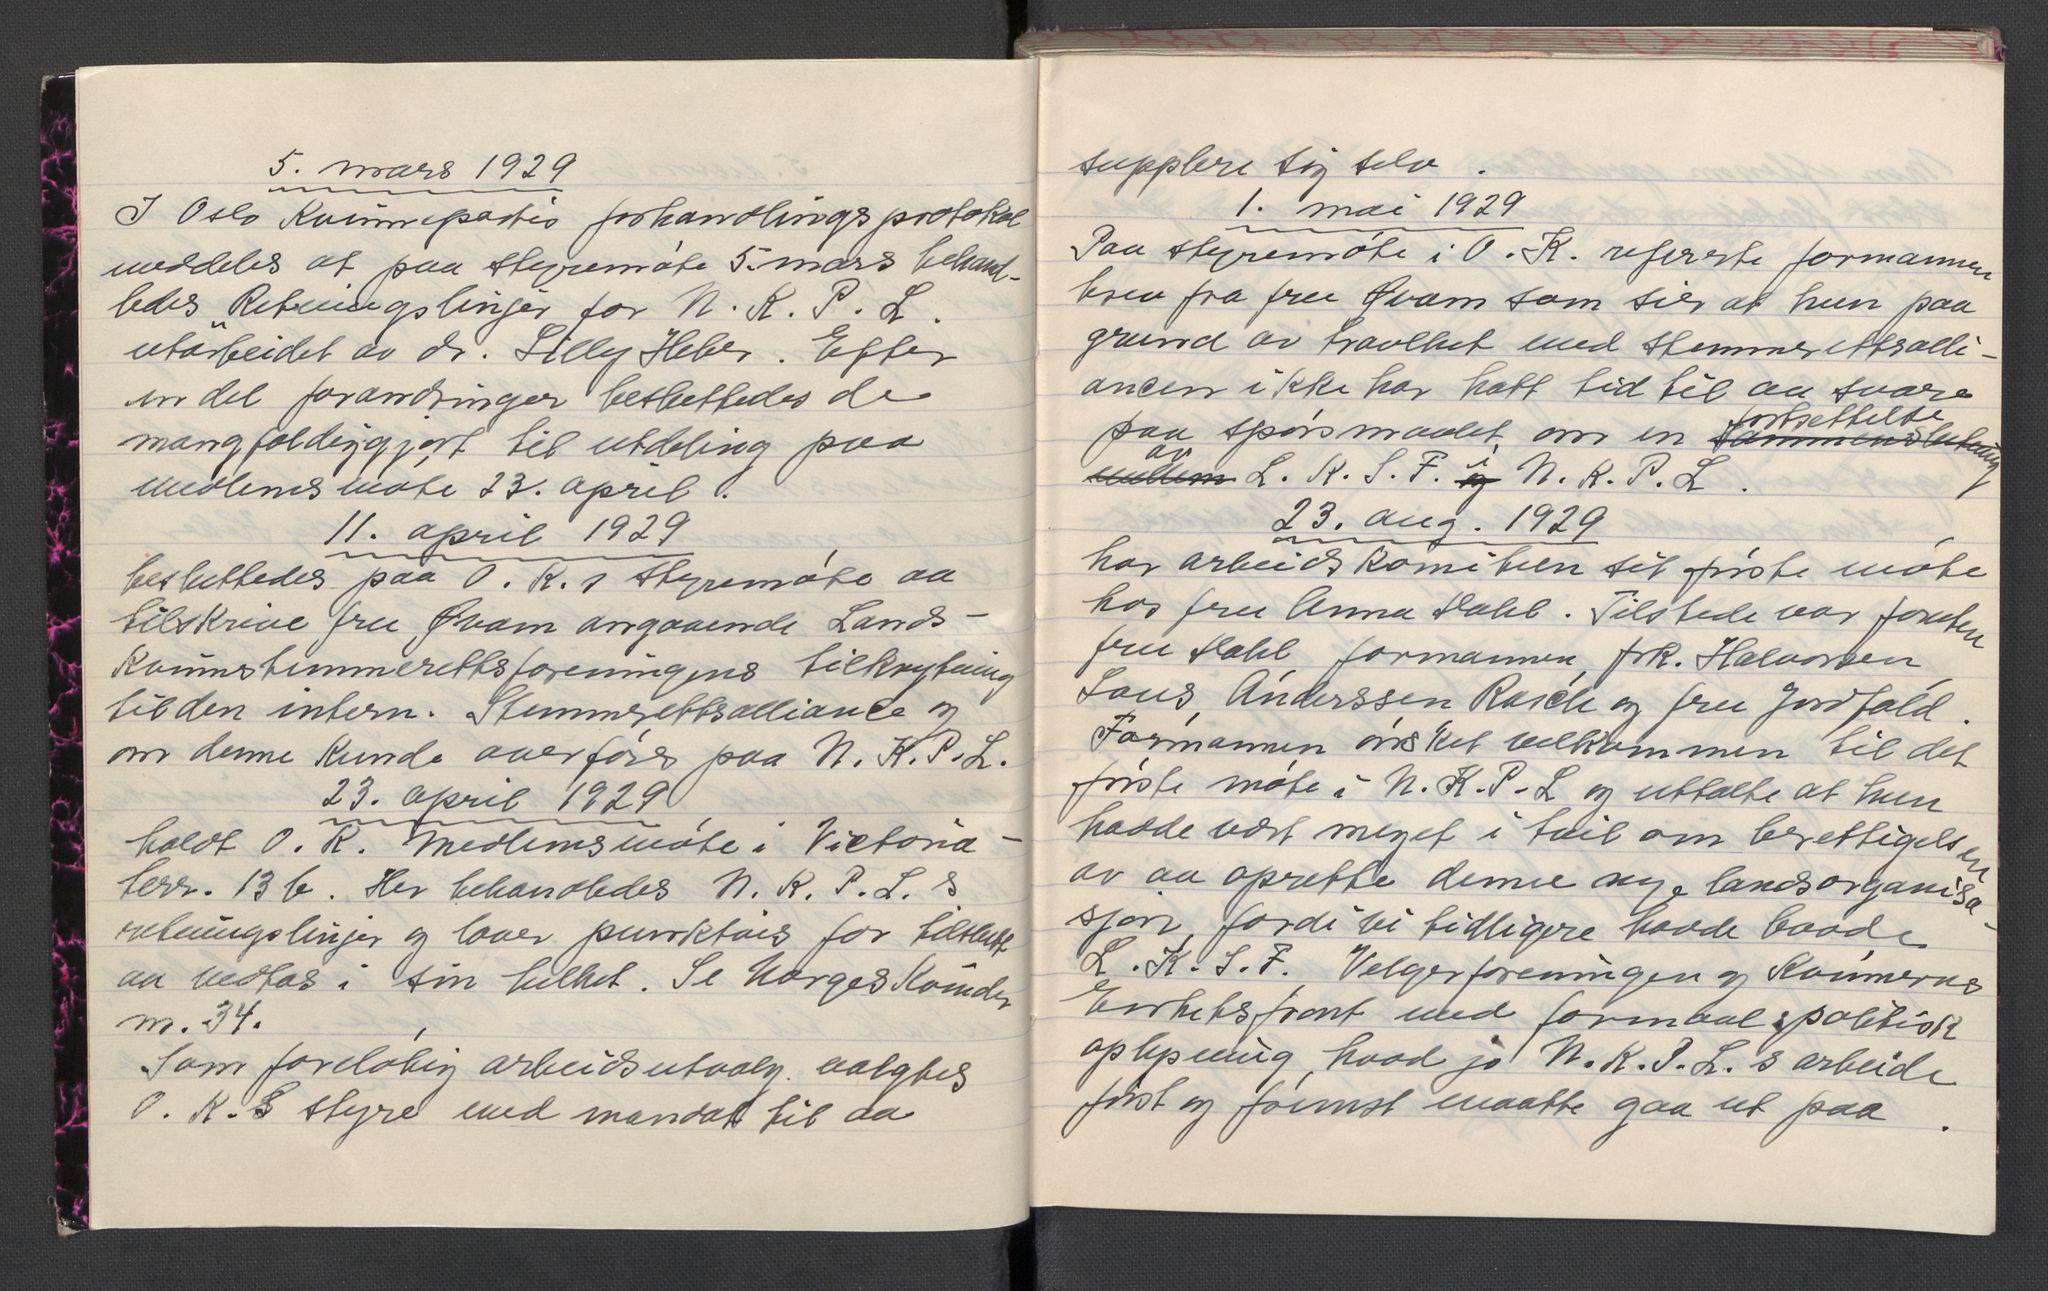 5. mars 1929
I Oslo Kvinnepartis forhandlingsprotokol
meddeles at paa styremöte 5. mars behand-
ledes Retningslinjer for N. K. P. L.
utarbeidet av dr. Lilly Heber. Efter
en del forandringer besluttedes de
mangfoldiggjort til utdeling paa
medlemsmöte 23. april.
11. april 1929
besluttedes paa O. K.s styremöte aa
tilskrive fru Qvam angaaende Lands-
kvinnstemmerettsforeningens tilknytning
til den intern. Stemmerettsalliance og
om denne kunde overföres paa N. K. P. L.
23. april 1929
holdt O. K. Medlemsmöte i Victoria-
terr. 13 b. Her behandledes N. K. P. L. s
retningslinjer og lover punktvis for tilslutt
aa vedtas i sin helhet. Se Norges Kvinder
nr. 34.
Som forelöbig arbeidsutvalg valgtes
O. K. S styre med mandat til aa
supplere sig selv.
1. mai 1929
Paa styremöte i O. K. refererte formannen
brev fra fru Qvam som sier at hun paa
grund av travlhet med stemmerettsalli-
ancen ikke har hatt tid til aa svare
paa spörsmaalet om en sammenslutning fortsettelse
mellem av L. K. S. F. og i N. K. P. L.
23. aug. 1929
har arbeidskomiteen sit förste möte
hos fru Anna Dahl. Tilstede var foruten
fru Dahl formannen, frk. Halvorsen,
Lous, Anderssen Rasch og fru Jordfald.
Formannen önsket velkommen til det
förste möte i N. K. P. L og uttalte at hun
hadde vært meget i tvil om berettigelsen
av aa oprette denne nye landsorganisa-
sjon, fordi vi tidligere hadde baade
L. K. S. F. Velgerforeningen og Kvinnernes
Enhetsfront med formaal: politisk
oplysning, hvad jo N. K. P. L. s arbeide
först og fremst maatte gaa ut paa.